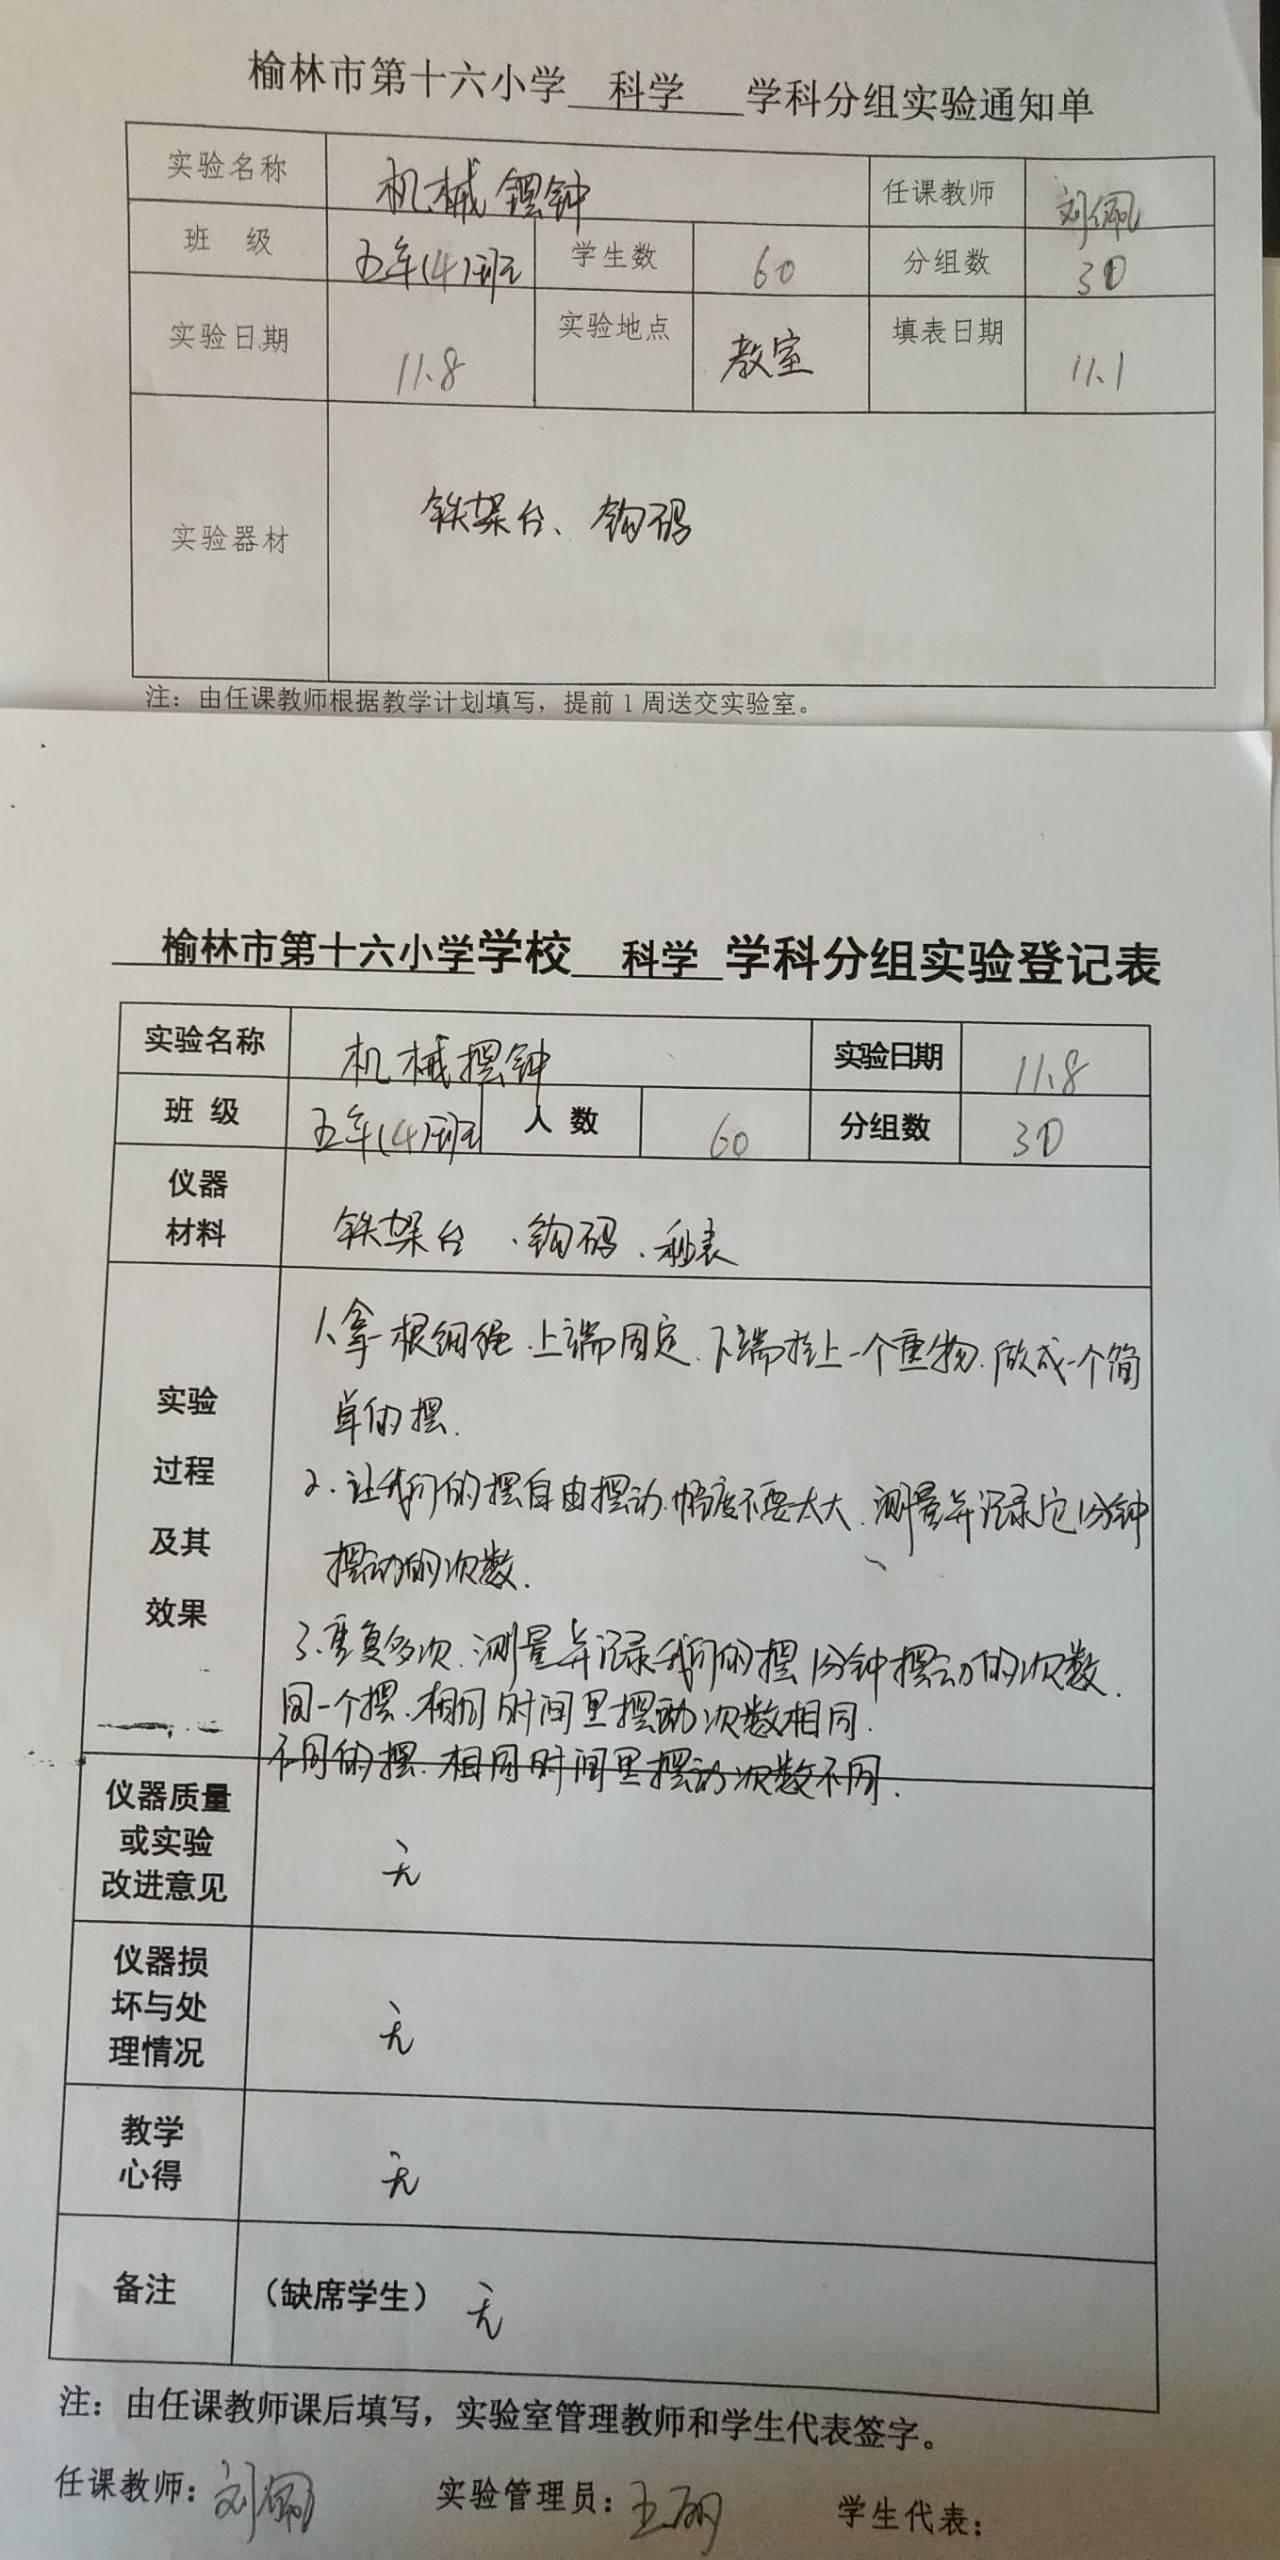 榆林市第十六小学 科学 学科分组实验通知单
实验名称 机械摆钟 任课教师 刘佩
班 级 五年(4)班 学生数 60 分组数 30
实验日期 11.8 实验地点 教室 填表日期 11.1
实验器材 铁架台、钩码
注：由任课教师根据教学计划填写，提前1周送交实验室。
榆林市第十六小学学校 科学 学科分组实验登记表
实验名称 机械摆钟 实验日期 11.8
班 级 五年(4)班 人 数 60 分组数 30
仪器
材料
铁架台、钩码、秒表
实验
过程
及其
效果
1、拿一根细绳、上端固定、下端挂上一个重物、做成一个简
单的摆.
2、让我们的摆自由摆动、幅度不要太大、测量并记录它1分钟
摆动的次数.
3、重复多次、测量并记录我们的摆1分钟摆动的次数.
同一个摆、相同时间里摆动次数相同.
不同的摆、相同时间里摆动次数不同.
仪器质量
或实验
改进意见
无
仪器损
坏与处
理情况
无
教学
心得
无
备注 （缺席学生） 无
注：由任课教师课后填写，实验室管理教师和学生代表签字。
任课教师：刘佩 实验管理员：王丽 学生代表：